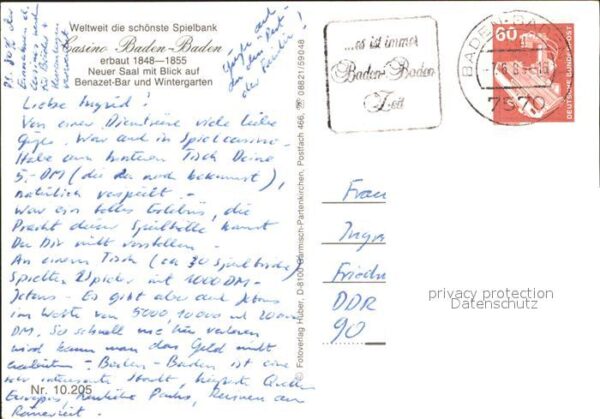 Weltweit die schönste Spielbank
Casino Baden-Baden
erbaut 1848—1855
Neuer Saal mit Blick auf
Benazet-Bar und Wintergarten
Liebe Ingrid!
Von einer Dienstreise viele liebe
Grüße. War auch im Spielcasino.
Habe am hinteren Tisch Deine
5,-DM (die Du noch bekommst),
natürlich verspielt.
War ein tolles Erlebnis, die
Pracht dieser Spielhölle kannst
Du Dir nicht vorstellen.
An einem Tisch (ca 30 Spieltische)
spielten 2 Spieler mit 1000 DM-
Jetons. Es gibt aber auch Jetons
im Werte von 5000, 10000 und 20000
DM. So schnell wie hier verloren
wird kann man das Geld nicht
Baden-Baden ist eine
sehr interessante Stadt, heißeste Quellen
Europas, herrliche Parks, Ruinen aus
Römerzeit.
Nr. 10.205
Grüße auch
an den Rest
der Familie!
© Fotoverlag Huber, D-8100 Garmisch-Partenkirchen, Postfach 466, ☎ 08821/59048
...es ist immer
Baden-Baden
Zeit
BADEN-BADEN
7570
60
DEUTSCHE BUNDESPOST
Frau
Inge
Friedr
DDR
90
privacy protection
Datenschutz